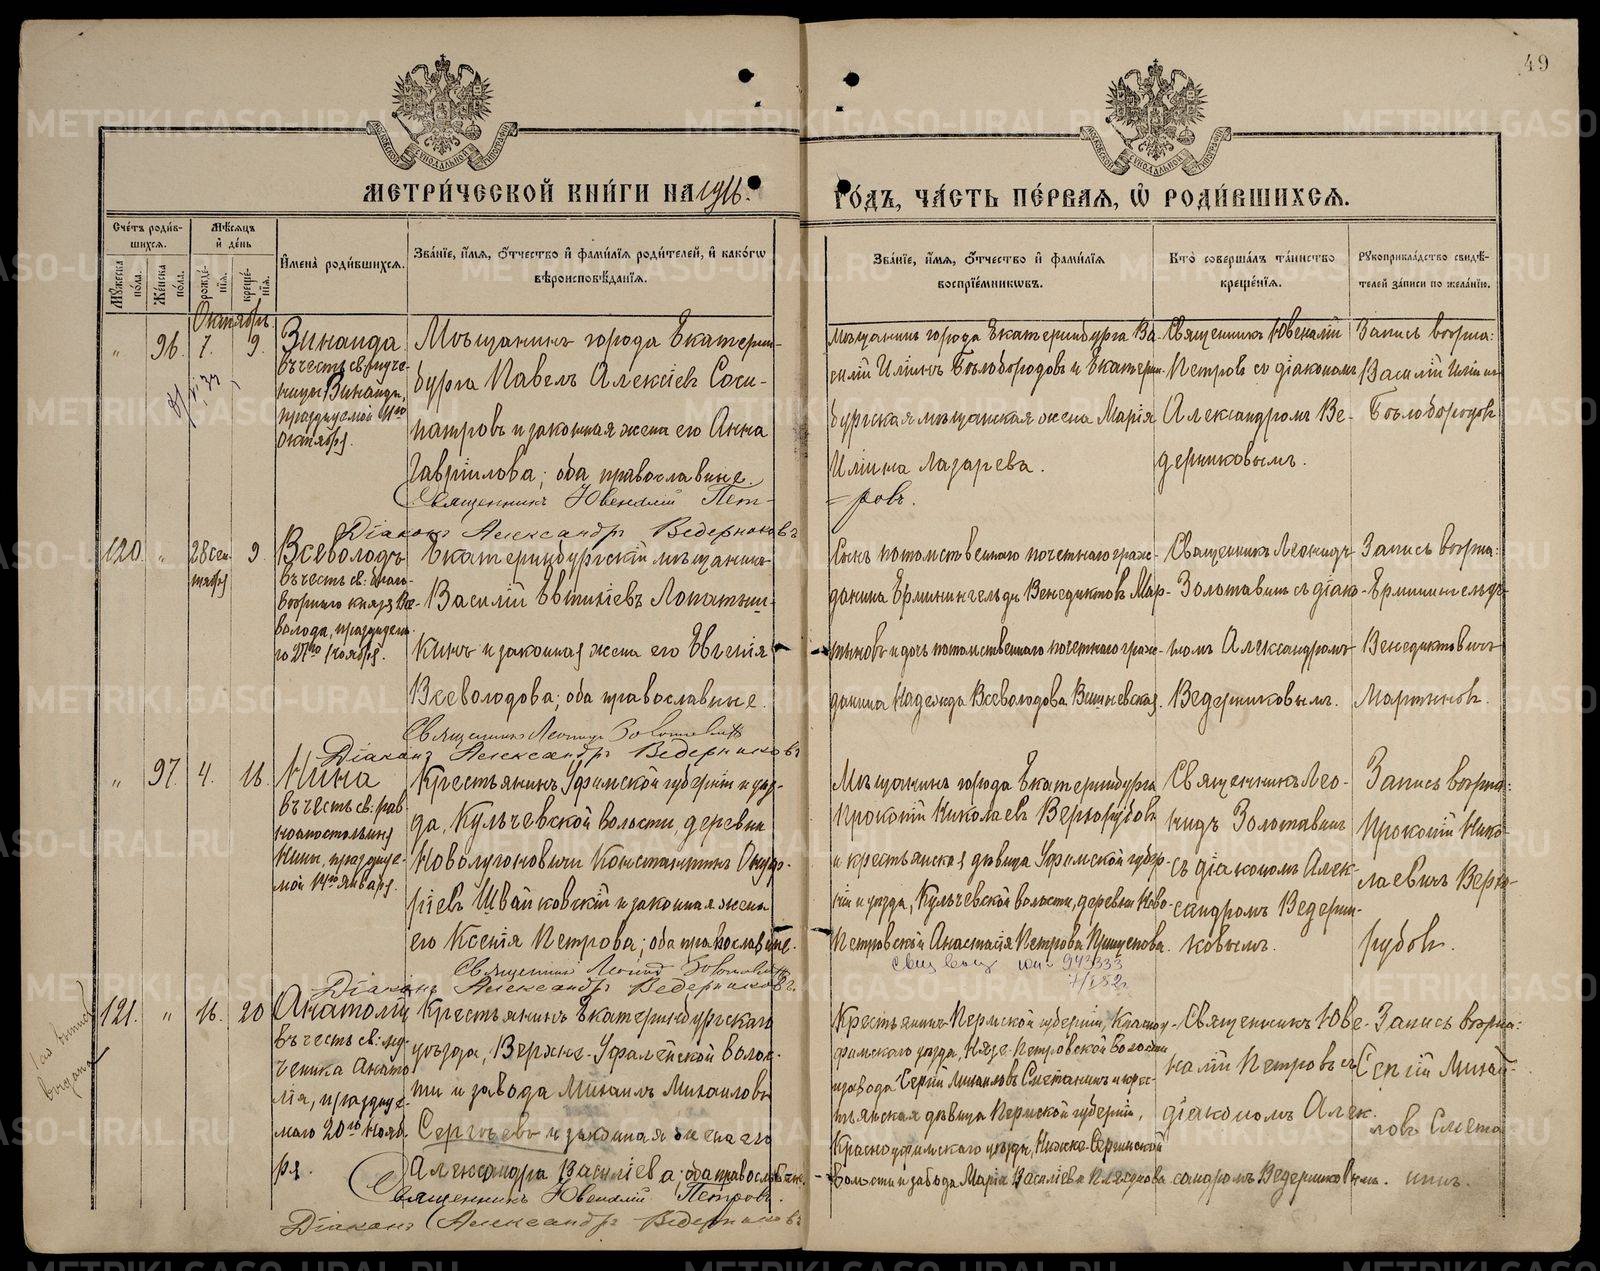 49
МЕТРИ́ЧЕСКОЙ КНИ́ГИ НА 1916.
ГО́ДЪ, ЧА́СТЬ ПЕ́РВАЯ, Ѡ РОДИ́ВШИХСЯ.
Сче́тъ роди́в-
шихся.
Мѣ́сяцъ
и҆ де́нь
Мꙋ́жеска
по́ла.
Же́нска
по́ла.
рожде́-
нїя.
креще́-
нїя.
И҆мена̀ роди́вшихся.
Зва́нїе, и҆́мя, ѻ҆́тчество и҆ фами́лїя роди́телей, и҆ како́гѡ
вѣроисповѣ́данїя.
Зва́нїе, и҆́мя, ѻ҆́тчество и҆ фами́лїя
восприе́мникѡвъ.
Кто̀ соверша́лъ та́инство
креще́нїя.
Рꙋкоприкла́дство свидѣ́-
телей за́писи по жела́нїю.
Октябрь
" 96. 7. 9.
Зинаида
въ честь св: муче-
ницы Зинаиды,
празднуемой 11го
октября.
Мѣщанинъ города Екатерин-
бурга Павелъ Алексіевъ Соси-
патровъ и законная жена его Анна
Гавріилова; оба православные.
Священникъ Ювеналій Пет-
ровъ.
Діаконъ Александръ Ведерниковъ
Мѣщанинъ города Екатеринбурга Ва-
силій Ильинъ Бѣлобородовъ и Екатерин-
бургская мѣщанская жена Марія
Ильина Лазарева.
Священникъ Ювеналій
Петровъ съ діакономъ
Александромъ Ве-
дерниковымъ.
Запись вѣрна:
Василій Ильинъ
Бѣлобородовъ
120. " 28 сен-
тября 9.
Всеволодъ
въ честь св: благо-
вѣрнаго князя Все-
волода, празднуем-
го 27го ноября.
Екатеринбургскій мѣщанинъ
Василій Евтихіевъ Лопатыш-
кинъ и законная жена его Евгенія
Всеволодова; оба православные.
Священникъ Леонидъ Золотавинъ
Діаконъ Александръ Ведерниковъ
Сынъ потомственнаго почетнаго граж-
данина Ерминингельдъ Венедиктовъ Мар-
тыновъ и дочь потомственнаго почетнаго граж-
данина Надежда Всеволодова Вишневская.
Священникъ Леонидъ
Золотавинъ съ діако-
номъ Александромъ
Ведерниковымъ.
Запись вѣрна:
Ерминингельдъ
Венедиктовичъ
Мартыновъ.
" 97. 4. 16.
Нина
въ честь св: рав-
ноапостольныя
Нины, празднуе-
мой 14го января.
Крестьянинъ Уфимской губерніи и уѣз-
да, Кульчевской волости, деревни
Константинъ
Швайковскій и законная жена
его Ксенія Петрова; оба православные.
Священникъ Леонидъ Золотавинъ
Діаконъ Александръ Ведерниковъ.
Мѣщанинъ города Екатеринбурга
Прокопій Николаевъ Верхорубовъ
и крестьянская дѣвица Уфимской губер-
ніи и уѣзда, Кульчевской волости, деревни Ново-
Петровской Анастасія Петрова
943333
7/I 52г.
Священникъ Лео-
нидъ Золотавинъ
съ діакономъ Алек-
сандромъ Ведерни-
ковымъ.
Запись вѣрна:
Прокопій Нико-
лаевичъ Верхо-
рубовъ.
121. " 16. 20
Анатолій
въ честь св: му-
ченика Анато-
лія, празднуе-
маго 20го нояб-
ря.
Крестьянинъ Екатеринбургскаго
уѣзда, Верхне-Уфалейской волос-
ти и завода Михаилъ Михаиловъ
Сергѣевъ и законная жена его
Александра Василіева; оба православные.
Священникъ Ювеналій Петровъ.
Діаконъ Александръ Ведерниковъ
Крестьянинъ Пермской губерніи, Красноу-
фимскаго уѣзда, Нязе-Петровской волости
и завода Сергій Михаиловъ Сметанинъ и крес-
тьянская дѣвица Пермской губерніи,
Красноуфимскаго уѣзда, Нижне-Сергинской
волости и завода Марія Василіева
Священникъ Юве-
налій Петровъ съ
діакономъ Алек-
сандромъ Ведерниковымъ.
Запись вѣрна:
Сергій Михай-
ловъ Смета-
нинъ.
выдана
METRIKI.GASO-URAL.RU